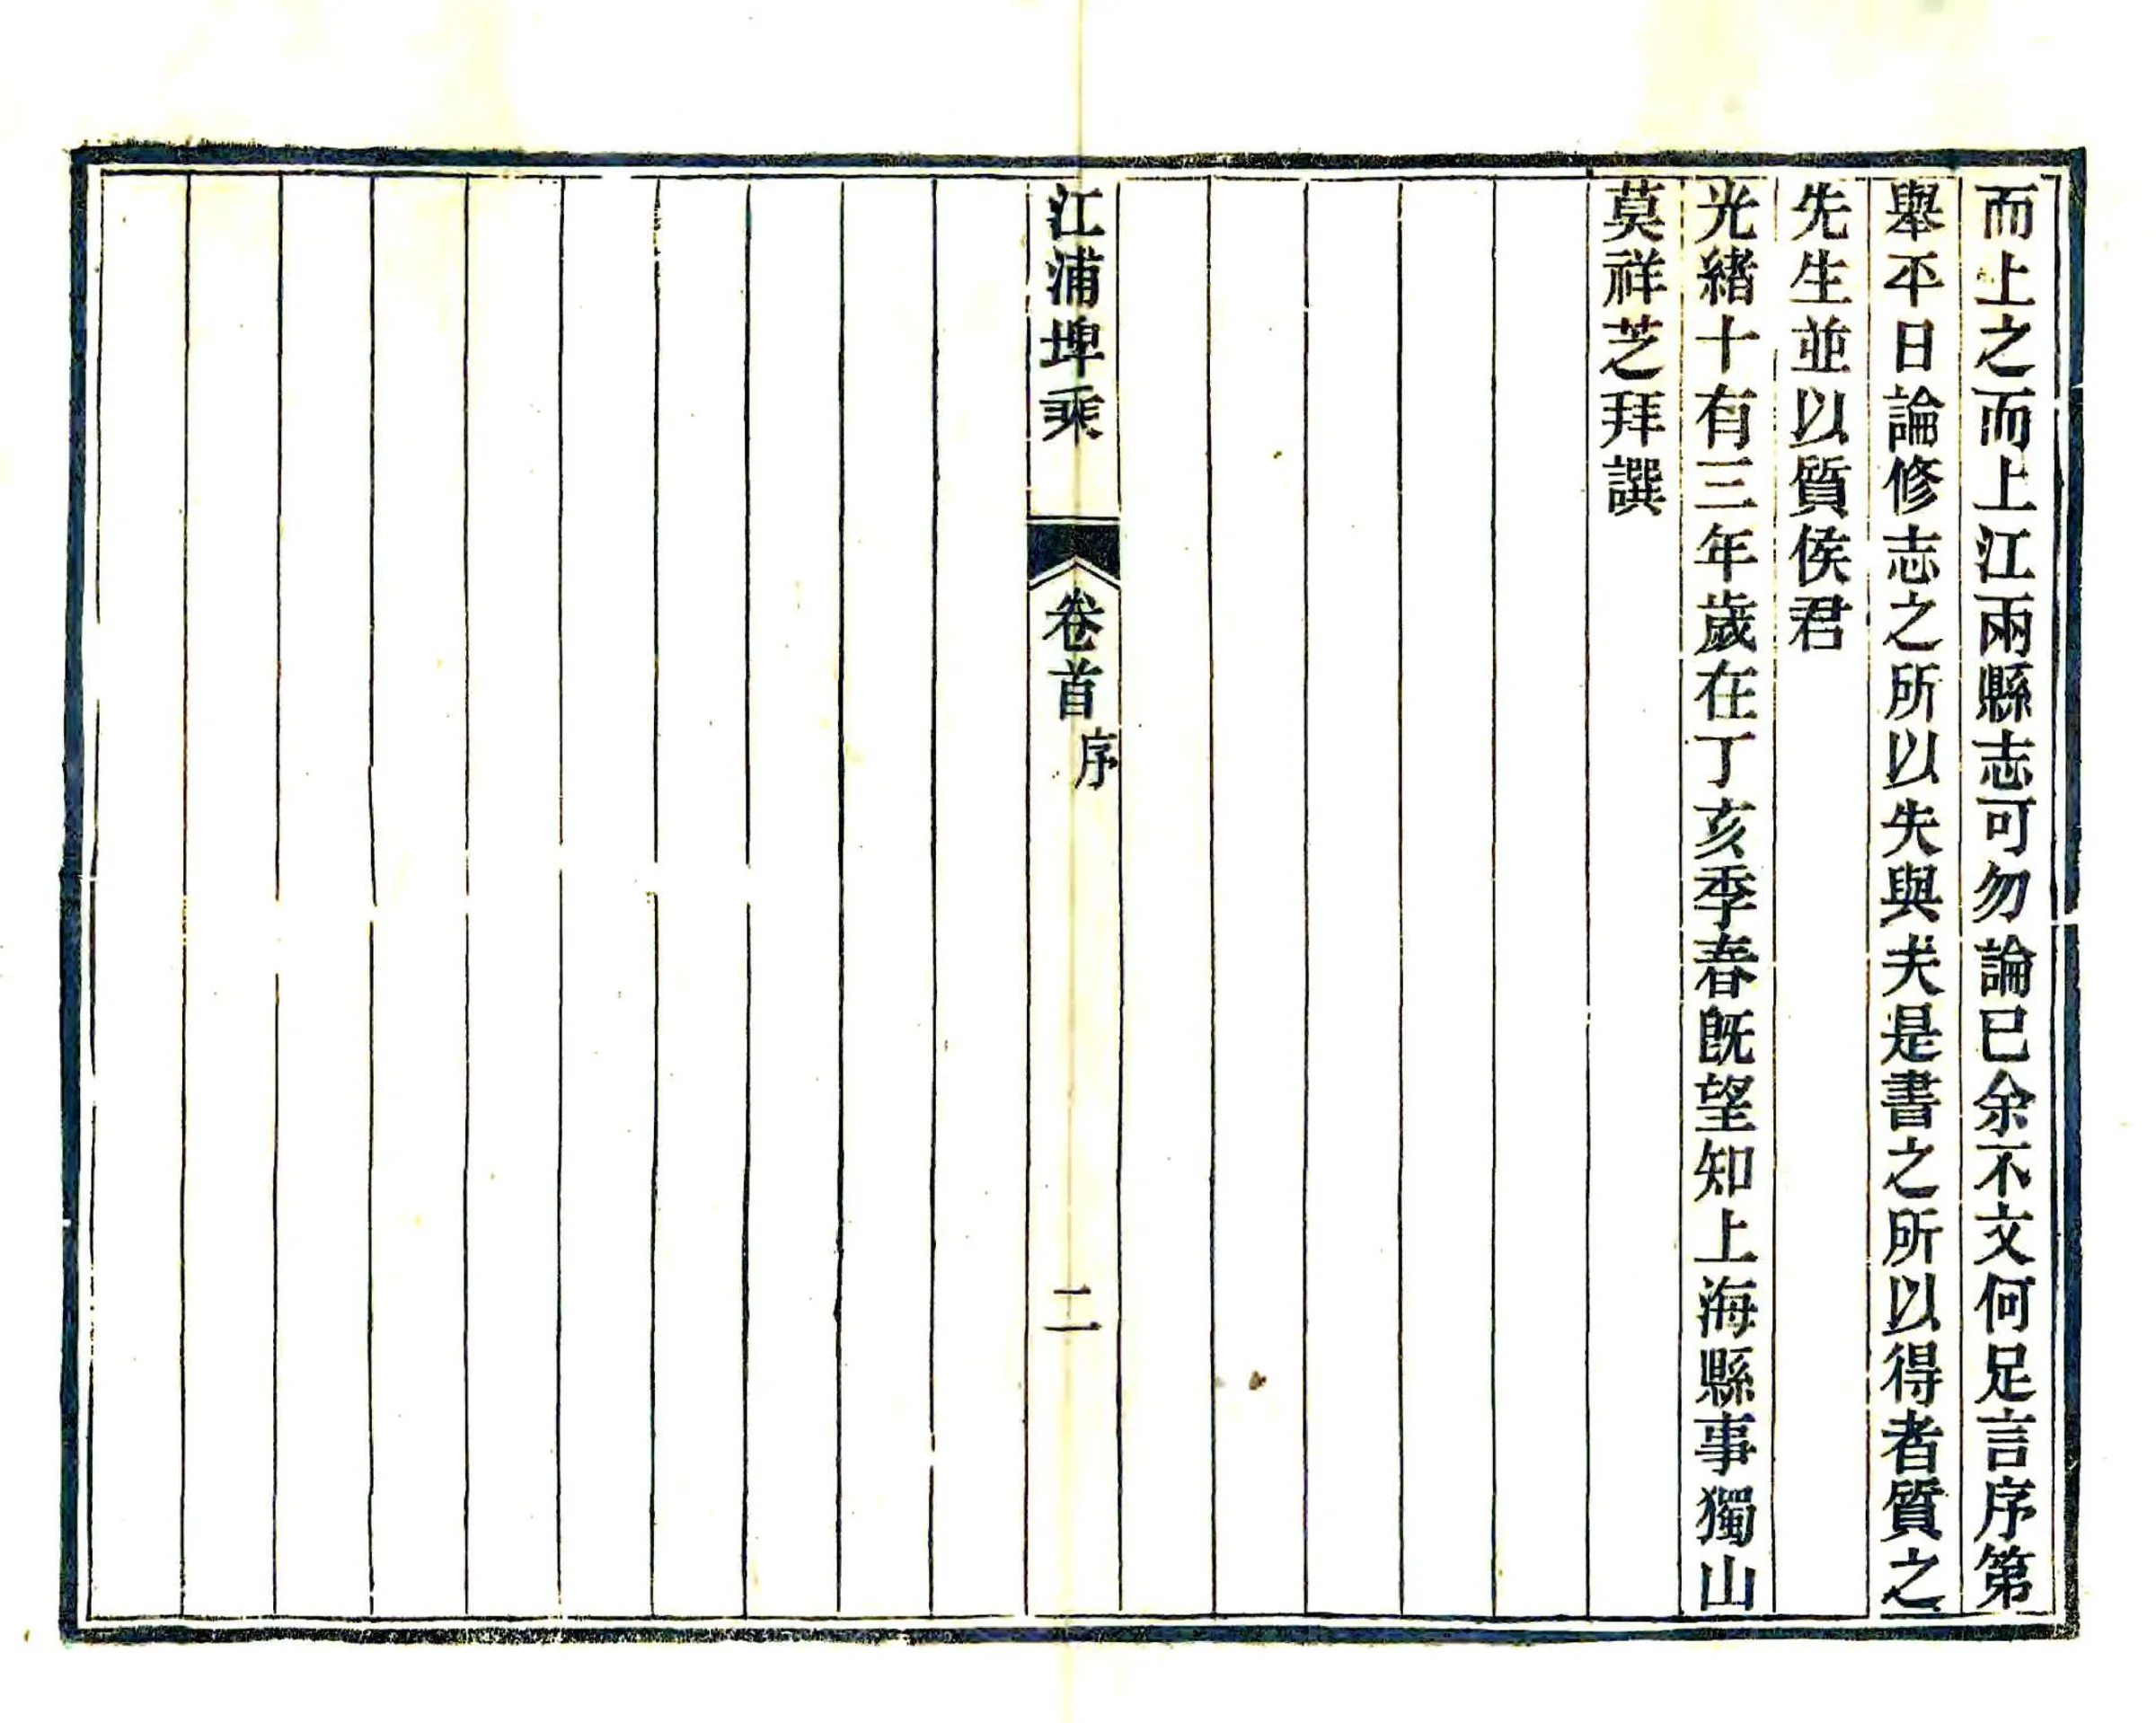 而上之而上江兩縣志可勿論已余不文何足言序第
舉平日論修志之所以失與夫是書之所以得者質之
先生並以質侯君
光緒十有三年歲在丁亥季春旣望知上海縣事獨山
莫祥芝拜譔
江浦埤乘
卷首
序
二